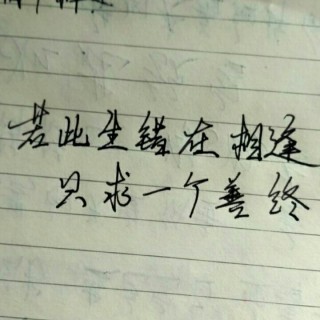 若此生错在相逢
只求一个善终